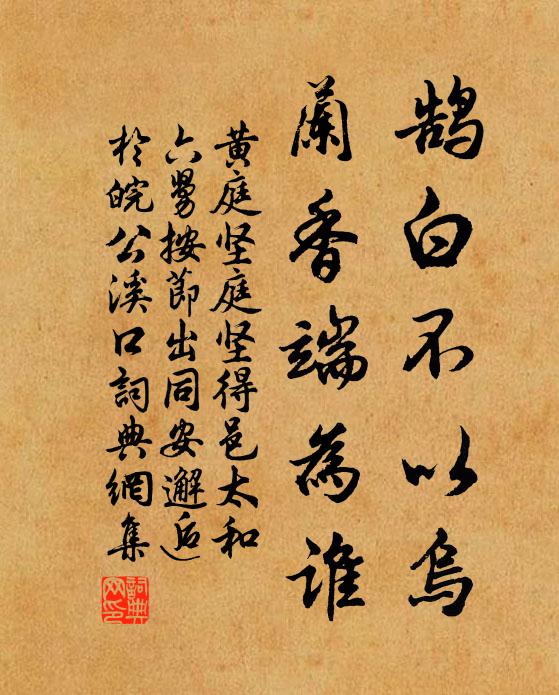 鹄白不以烏
蘭香端為誰
黄庭坚庭坚得邑太和
六舅按節出同安邂逅
於皖公溪口詞典網集
詞典
网印